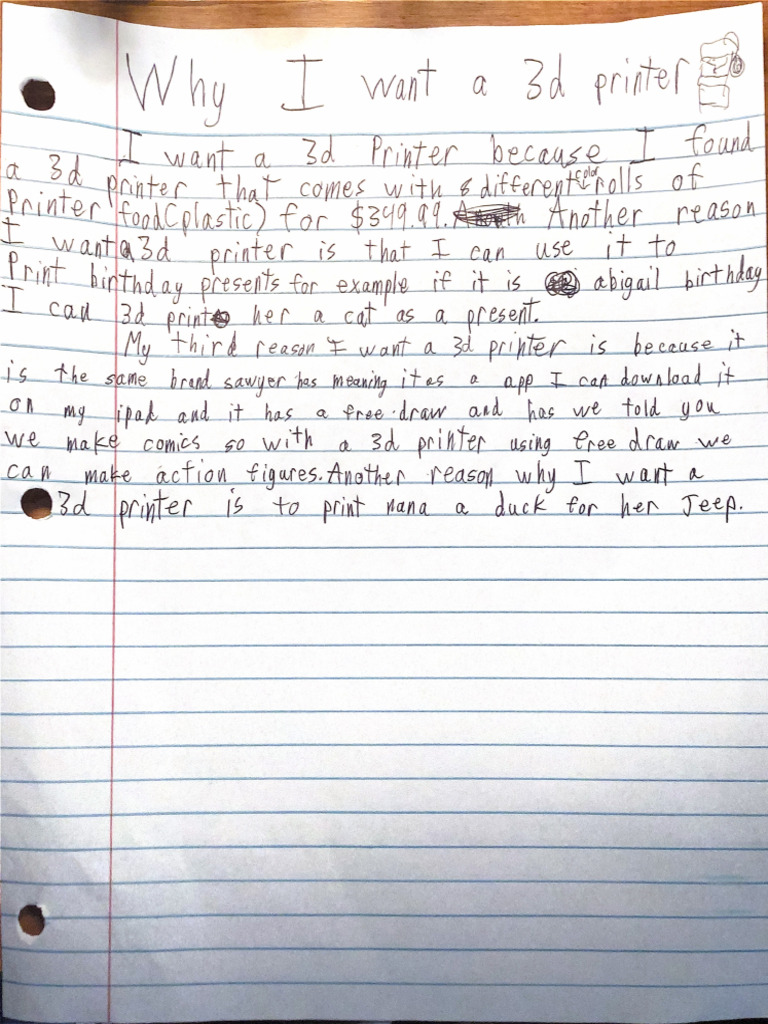 Why I want a 3d printer
I want a 3d Printer because I found
a 3d printer that comes with 8 different color rolls of
Printer food(plastic) for $349.99. Another reason
I want a 3d printer is that I can use it to
Print birthday presents for example if it is abigail birthday
I can 3d print her a cat as a present.
My third reason I want a 3d printer is because it
is the same brand sawyer has meaning it as a app I can download it
on my ipad and it has a free draw and has we told you
we make comics so with a 3d printer using free draw we
can make action figures. Another reason why I want a
3d printer is to print nana a duck for her Jeep.